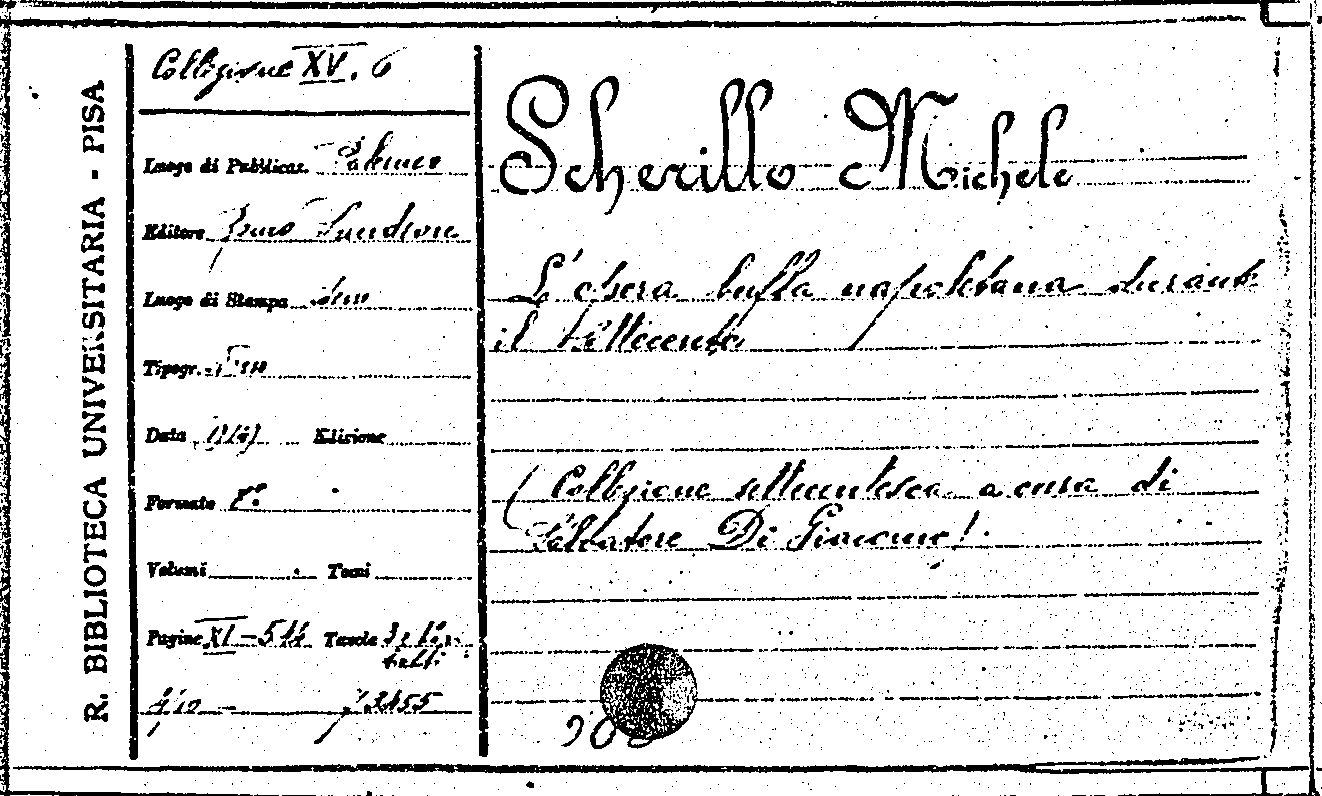 R. BIBLIOTECA UNIVERSITARIA - PISA
Collezione XV. 6
Luogo di Pubblicaz. Palermo
Editore Remo Sandron
Luogo di Stampa
Tipogr.
Data Edizione
Formato 8.°
Volumi Tomi
Pagine XI - 514 Tavole
Scherillo Michele
L'opera buffa napoletana durante
il settecento
(Collezione settecentesca a cura di
Salvatore Di Giacomo).